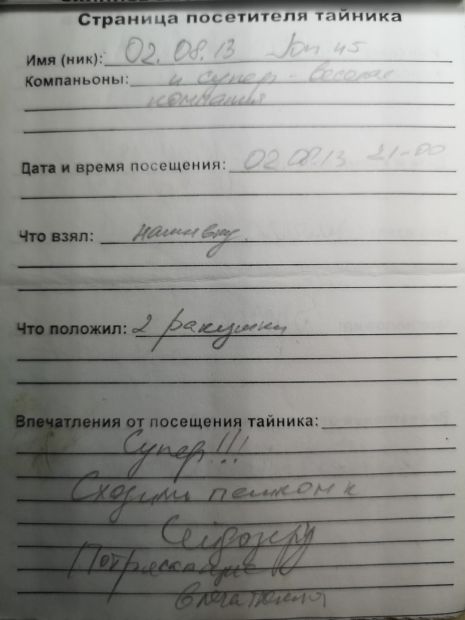 Страница посетителя тайника
Имя (ник): 02.08.13 Jon 45
Компаньоны: и супер - веселая
компания
Дата и время посещения: 02.08.13 21-00
Что взял: нашивку.
Что положил: 2 ракушки
Впечатления от посещения тайника:
Супер!!!
Сходили пешком к
Потрясающие
впечатления